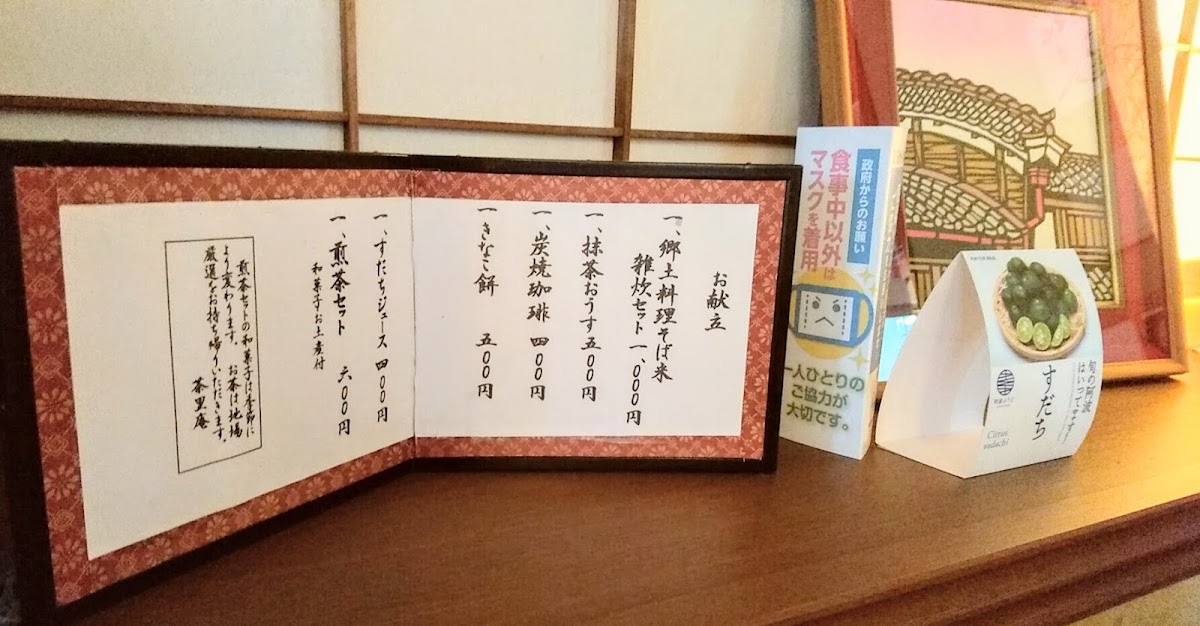 お献立
一、郷土料理そば米
雑炊セット 一、〇〇〇円
一、抹茶おうす 五〇〇円
一、炭焼珈琲 四〇〇円
一、きなこ餅 五〇〇円
一、すだちジュース 四〇〇円
一、煎茶セット 六〇〇円
和菓子お土産付
煎茶セットの和菓子は季節に
より変わります。お茶は地場
厳選をお持ち帰りいただきます。
茶里庵
政府からのお願い
食事中以外は
マスクを着用
一人ひとりの
ご協力が
大切です。
旬の阿波
はいってます!
すだち
Citrus
sudachi